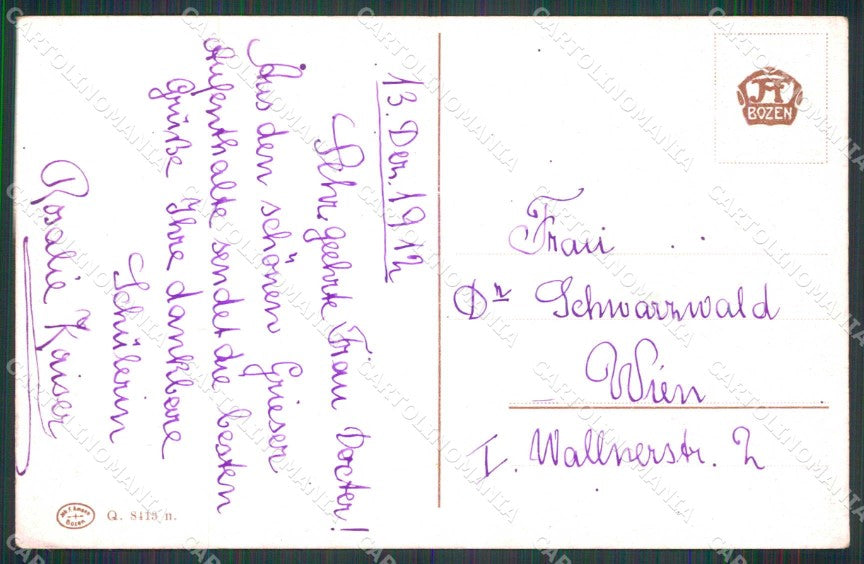 13. Dez. 1912
Sehr geehrte Frau Doctor!
Aus den schönen Grieser
Aufenthalte sendet die besten
Grüße Ihre dankbare
Schülerin
Rosalie Kaiser
JFA
BOZEN
Frau
Dr Schwarzwald
Wien
I. Wallnerstr. 2
Joh. F. Amonn
Bozen
Q. 8415 n.
CARTOLINOMANIA